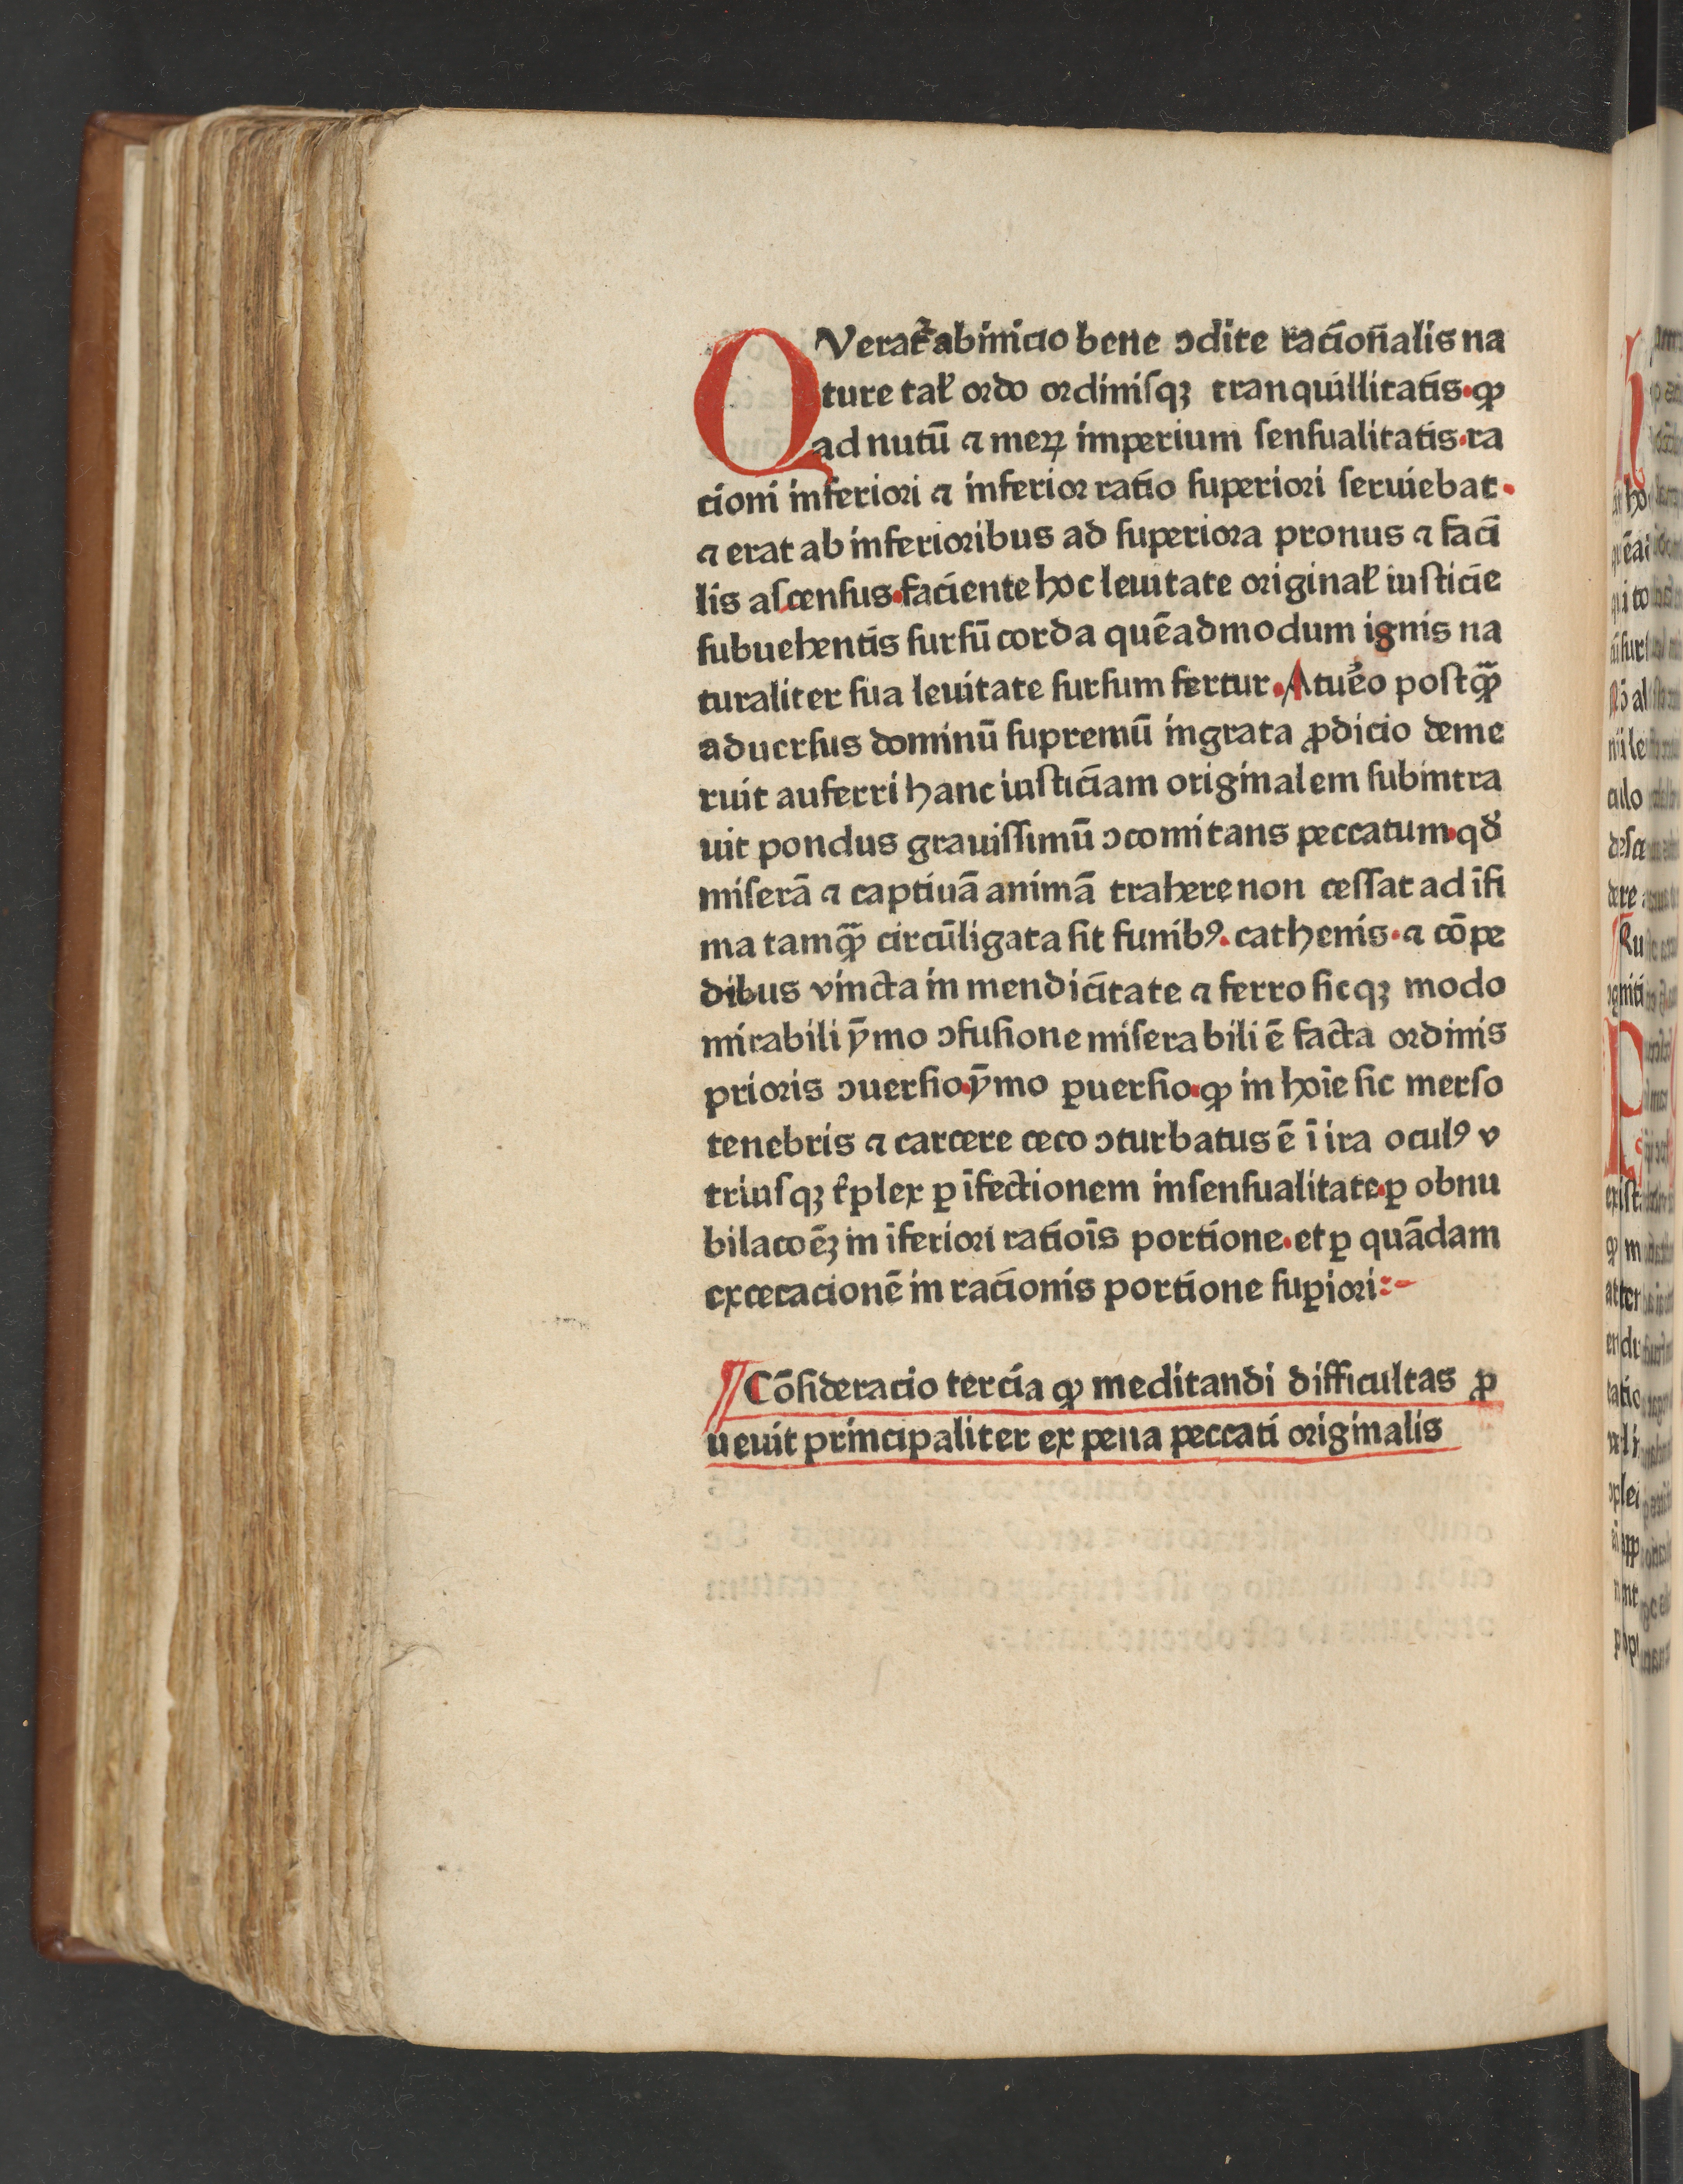 QVerat᷑ ab inicio bene ꝯdite racion̄alis na
ture tał ordo ordinisqꝫ tranquillitatis·ꝙ
ad nutū ⁊ meꝝ imperium sensualitatis·ra
cioni inferiori ⁊ inferior ratio superiori seruiebat·
⁊ erat ab inferioribus ad superiora pronus ⁊ faci
lis ascensus·faciente hoc leuitate original̄ iusticie
subuehentis sursū corda quēadmodum ignis na
turaliter sua leuitate sursum fertur·At ue᷑o postꝙ̄
aduersus dominū supremū ingrata ꝓdicio deme
ruit auferri hanc iusticiam originalem subintra
uit pondus grauissimū ꝯcomitans peccatum·qd̓
miserā ⁊ captiuā animā trahere non cessat ad īfi
ma tamꝙ̄ circūligata sit funibꝰ·cathenis·⁊ cōpe
dibus vincta in mendicitate ⁊ ferro sicqꝫ modo
mirabili ȳmo ꝯfusione miserabili ē facta ordinis
prioris ꝯuersio·ȳmo ꝑuersio·ꝙ in hoīe sic merso
tenebris ⁊ carcere ceco ꝯturbatus ē ī ira oculꝰ v
triusqꝫ t᷑plex ꝑ īfectionem in sensualitate·ꝑ obnu
bilacoēꝫ in īferiori ratiois̄ portione·et ꝑ quādam
excecacionē in racionis portione suꝑiori:-
¶Cōsideracio tercia ꝙ meditandi difficultas ꝓ
uenit principaliter ex pena peccati originalis